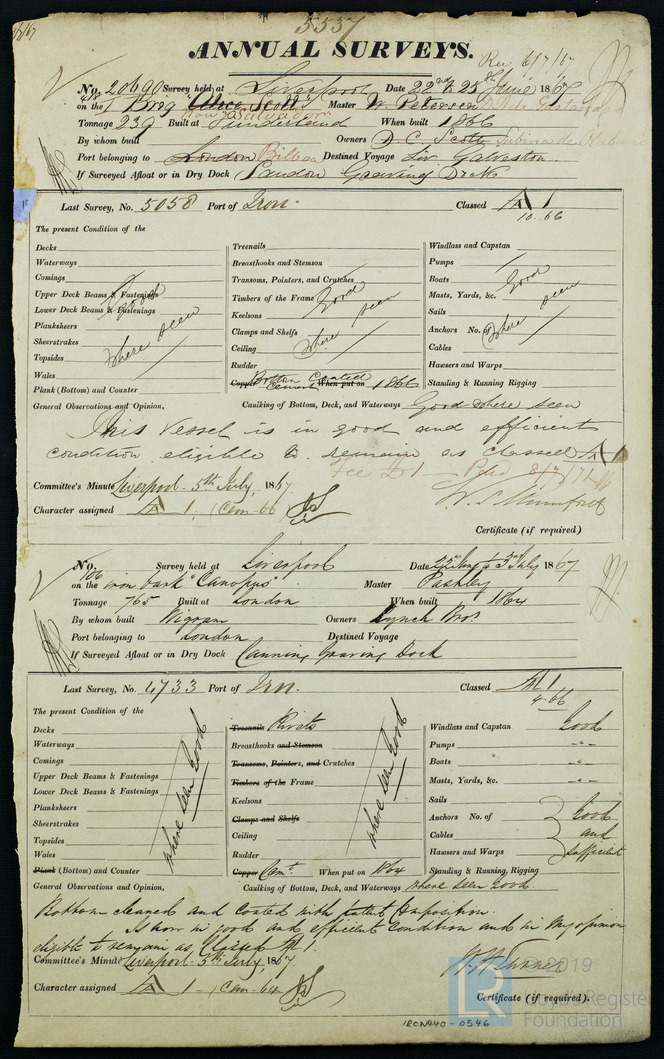 5537
ANNUAL SURVEYS.
No. 20690 Survey held at Liverpool Date 22nd & 25 June 1867
on the I Brog "Alice Scott" Master W. Peterson
now "Salvador"
Tonnage 239 Built at Sunderland When built 1866
By whom built Owners D. C. Scott
Port belonging to London Bilboa Destined Voyage Liv. Galveston
If Surveyed Afloat or in Dry Dock Sandon Graving Dock
Last Survey, No. 5058 Port of Iron. Classed A 1
10.66
The present Condition of the
Decks
Waterways
Comings
Upper Deck Beams & Fastenings
Lower Deck Beams & Fastenings
Planksheers
Sheerstrakes
Topsides
Wales
Plank (Bottom) and Counter
Good where seen
Treenails
Breasthooks and Stemson
Transoms, Pointers, and Crutches
Timbers of the Frame
Keelsons
Clamps and Shelfs
Ceiling
Rudder
Copper Bottom Coated Cement When put on 1866
Good where seen
Windlass and Capstan
Pumps
Boats
Masts, Yards, &c.
Sails
Anchors No. of
Cables
Hawsers and Warps
Standing & Running Rigging
Good where seen
General Observations and Opinion, Caulking of Bottom, Deck, and Waterways Good where seen
This Vessel is in good and efficient
condition eligible to remain as classed A 1
Fee £1
Committee's Minute Liverpool - 5th July, 1867.
Character assigned A 1. (Cem-66
Certificate (if required)
No. 706 Survey held at Liverpool Date 3rd July 1867
on the iron bark "Canopus" Master Pashley
Tonnage 765 Built at London When built 1864
By whom built Wigram Owners Lynch Bros
Port belonging to London Destined Voyage
If Surveyed Afloat or in Dry Dock Canning Graving Dock
Last Survey, No. 4733 Port of Irn. Classed A 1
4.66
The present Condition of the
Decks
Waterways
Comings
Upper Deck Beams & Fastenings
Lower Deck Beams & Fastenings
Planksheers
Sheerstrakes
Topsides
Wales
Plank (Bottom) and Counter
where seen Good
Treenails Rivets
Breasthooks and Stemson
Transoms, Pointers, and Crutches
Timbers of the Frame
Keelsons
Clamps and Shelfs
Ceiling
Rudder
Copper Cemt. When put on 1864
where seen Good
Windlass and Capstan Good
Pumps -"-
Boats -"-
Masts, Yards, &c. -"-
Sails
Anchors No. of Good
Cables and
Hawsers and Warps sufficient
Standing & Running, Rigging
General Observations and Opinion, Caulking of Bottom, Deck, and Waterways where seen Good
Bottom cleaned and coated with patent Composition.
Is now in good and efficient condition and in my opinion
eligible to remain as Classed A 1.
Committee's Minute Liverpool - 5th July, 1867.
Character assigned A 1 - (Cem-64
Certificate (if required).
IRON440-0546
© 2019
Lloyd's Register
Foundation